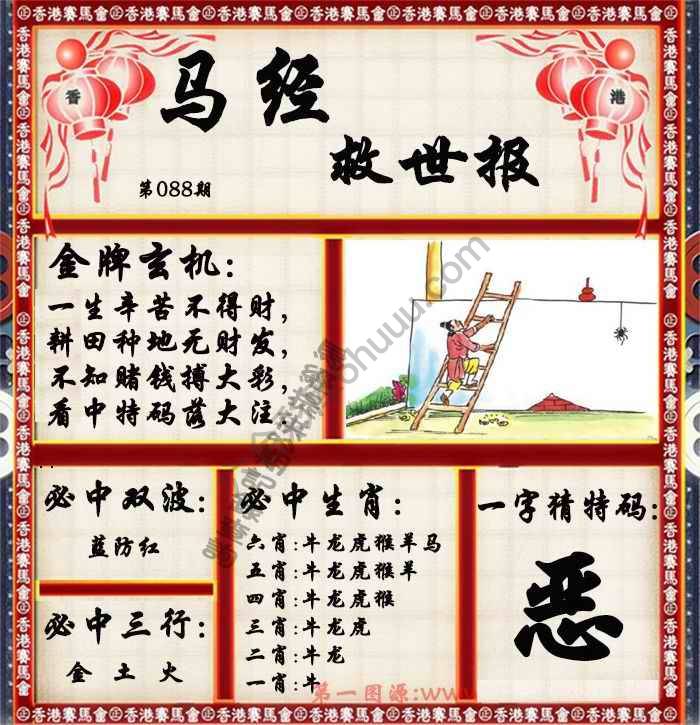 香港賽馬會
香
港
马经
救世报
第088期
金牌玄机:
一生辛苦不得财,
耕田种地无财发,
不知赌钱搏大彩,
看中特码落大注.
必中双波:
蓝防红
必中三行:
金 土 火
必中生肖:
六肖:牛龙虎猴羊马
五肖:牛龙虎猴羊
四肖:牛龙虎猴
三肖:牛龙虎
二肖:牛龙
一肖:牛
一字猜特码:
恶
第一图源:www